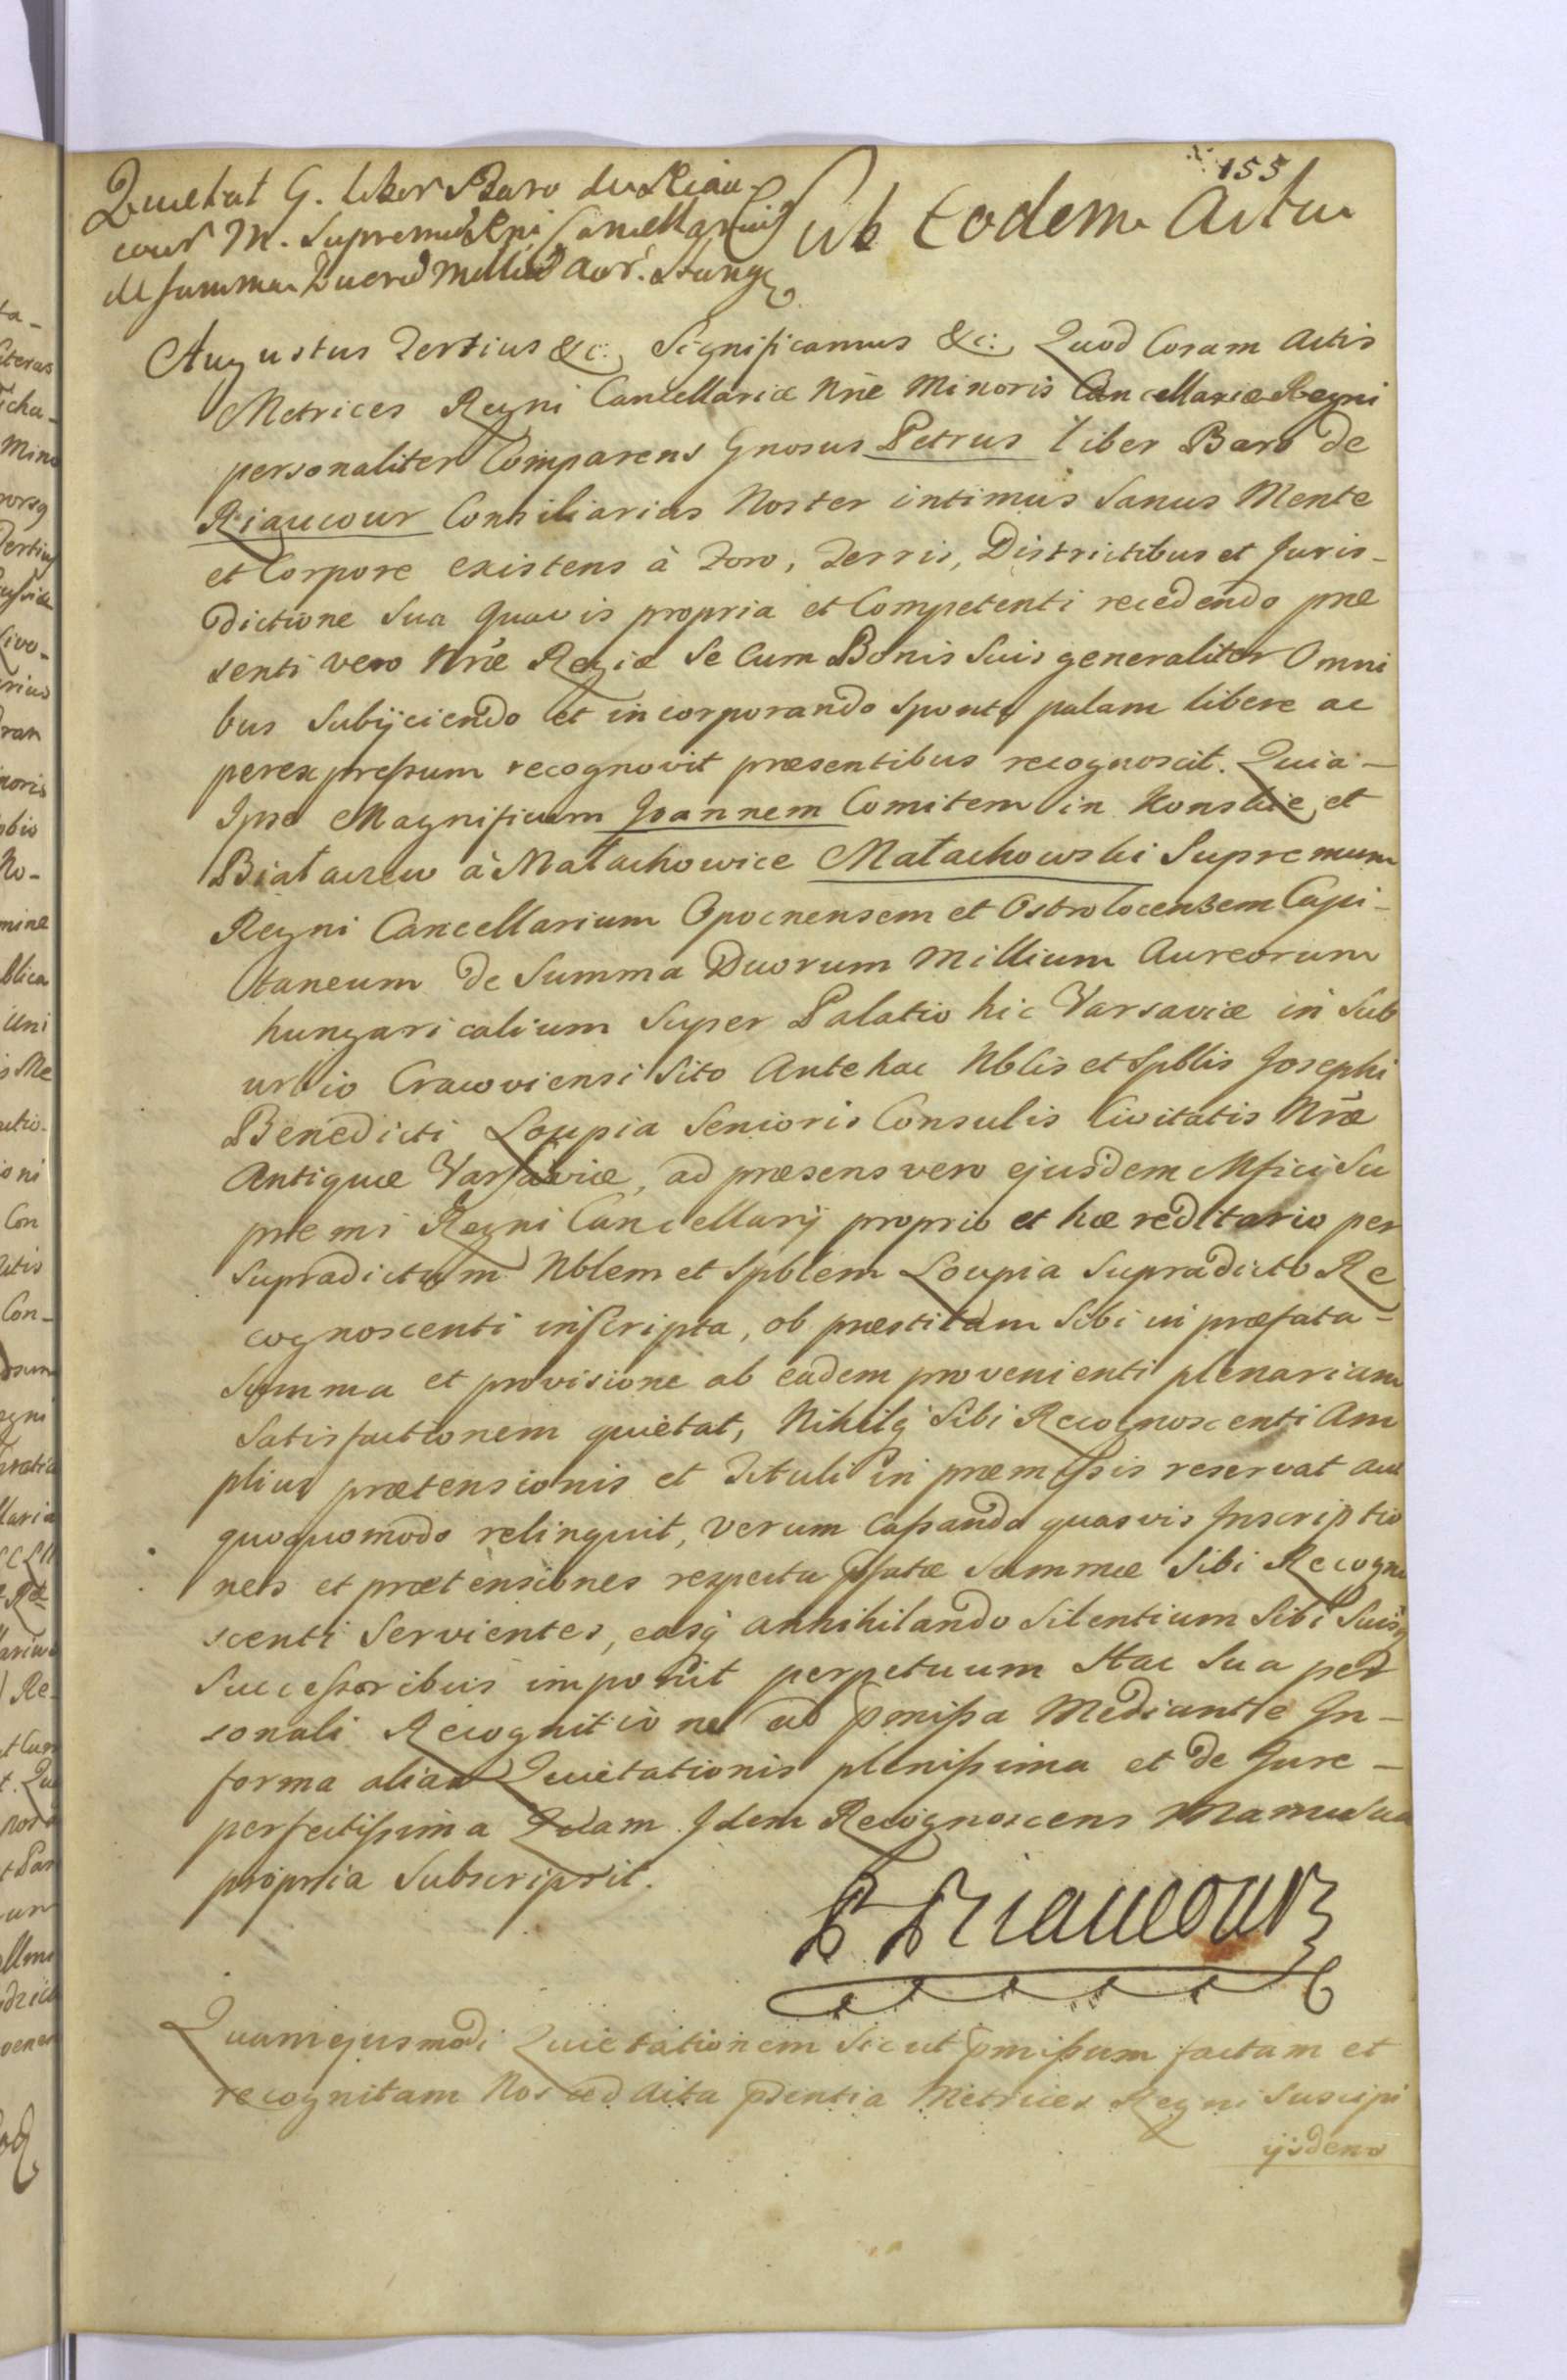 155
Quietat G. liber Baro de Riau
cour M. Supremū Rni Cancellarium
de summa Duorū Milliū Aur. Hung
Sub Eodem Actu
Augustus Tertius &c: Significamus &c: Quod Coram Actis
Metrices Regni Cancellariæ Nrñe Minoris Cancellariæ Regni
personaliter Comparens Gnosus Petrus liber Baro De
Riaucour Consiliarius Noster intimus Sanus Mente
et Corpore existens à Foro, Terris, Districtibus et Juris-
dictione Sua quavis propria et Competenti recedendo præ
senti vero Nræ Regiæ Se Cum Bonis Suis generaliter Omni
bus Subijciendo et incorporando sponte palam libere ac
per expressum recognovit præsentibus recognoscit. Quia-
Ipse Magnificum Joannem Comitem in Konskie et
Białaczew à Małachowice Małachowski Supremum
Regni Cancellarium Opocnensem et Ostrolocensem Capi-
taneum De Summa Duorum Millium Aureorum
hungaricalium Super Palatio hic Varsaviæ in Sub
urbio Cracoviensi Sito Antehac Nblis et Spblis Josephi
Benedicti Loupia Senioris Consulis Civitatis Nræ
Antiquæ Varsaviæ, ad præsens vero ejusdem Mfici Su
premi Regni Cancellarij proprio et hæreditario per
Supradictum Nblem et Spblem Loupia Supradicto Re
cognoscenti inscripta, ob præstitam Sibi in præfata-
Summa et provisione ab eadem provenienti plenariam
Satisfactionem quietat, Nihilq̃ Sibi Recognoscenti Am
plius prætensionis et Tituli in præmissis reservat aut
quoquomodo relinquit, Verum Cassando quasvis Inscriptio
nes et prætensiones respectu pfatæ Summæ Sibi Recogno
scenti Servientes, easq̃ annihilando Silentium Sibi Suisq̃
Successoribus imponit perpetuum Hac Sua per
sonali Recognitione ad pmissa Mediante In-
forma alias Quietationis plenissima et de Jure-
perfectissima Idem Recognoscens Manu Sua
propria Subscripsit.
P Riaucour
Quam ejusmodi Quietationem Sicut pmissum factam et
recognitam Nos ad Acta psentia Metrices Regni Suscipi
ijsdem